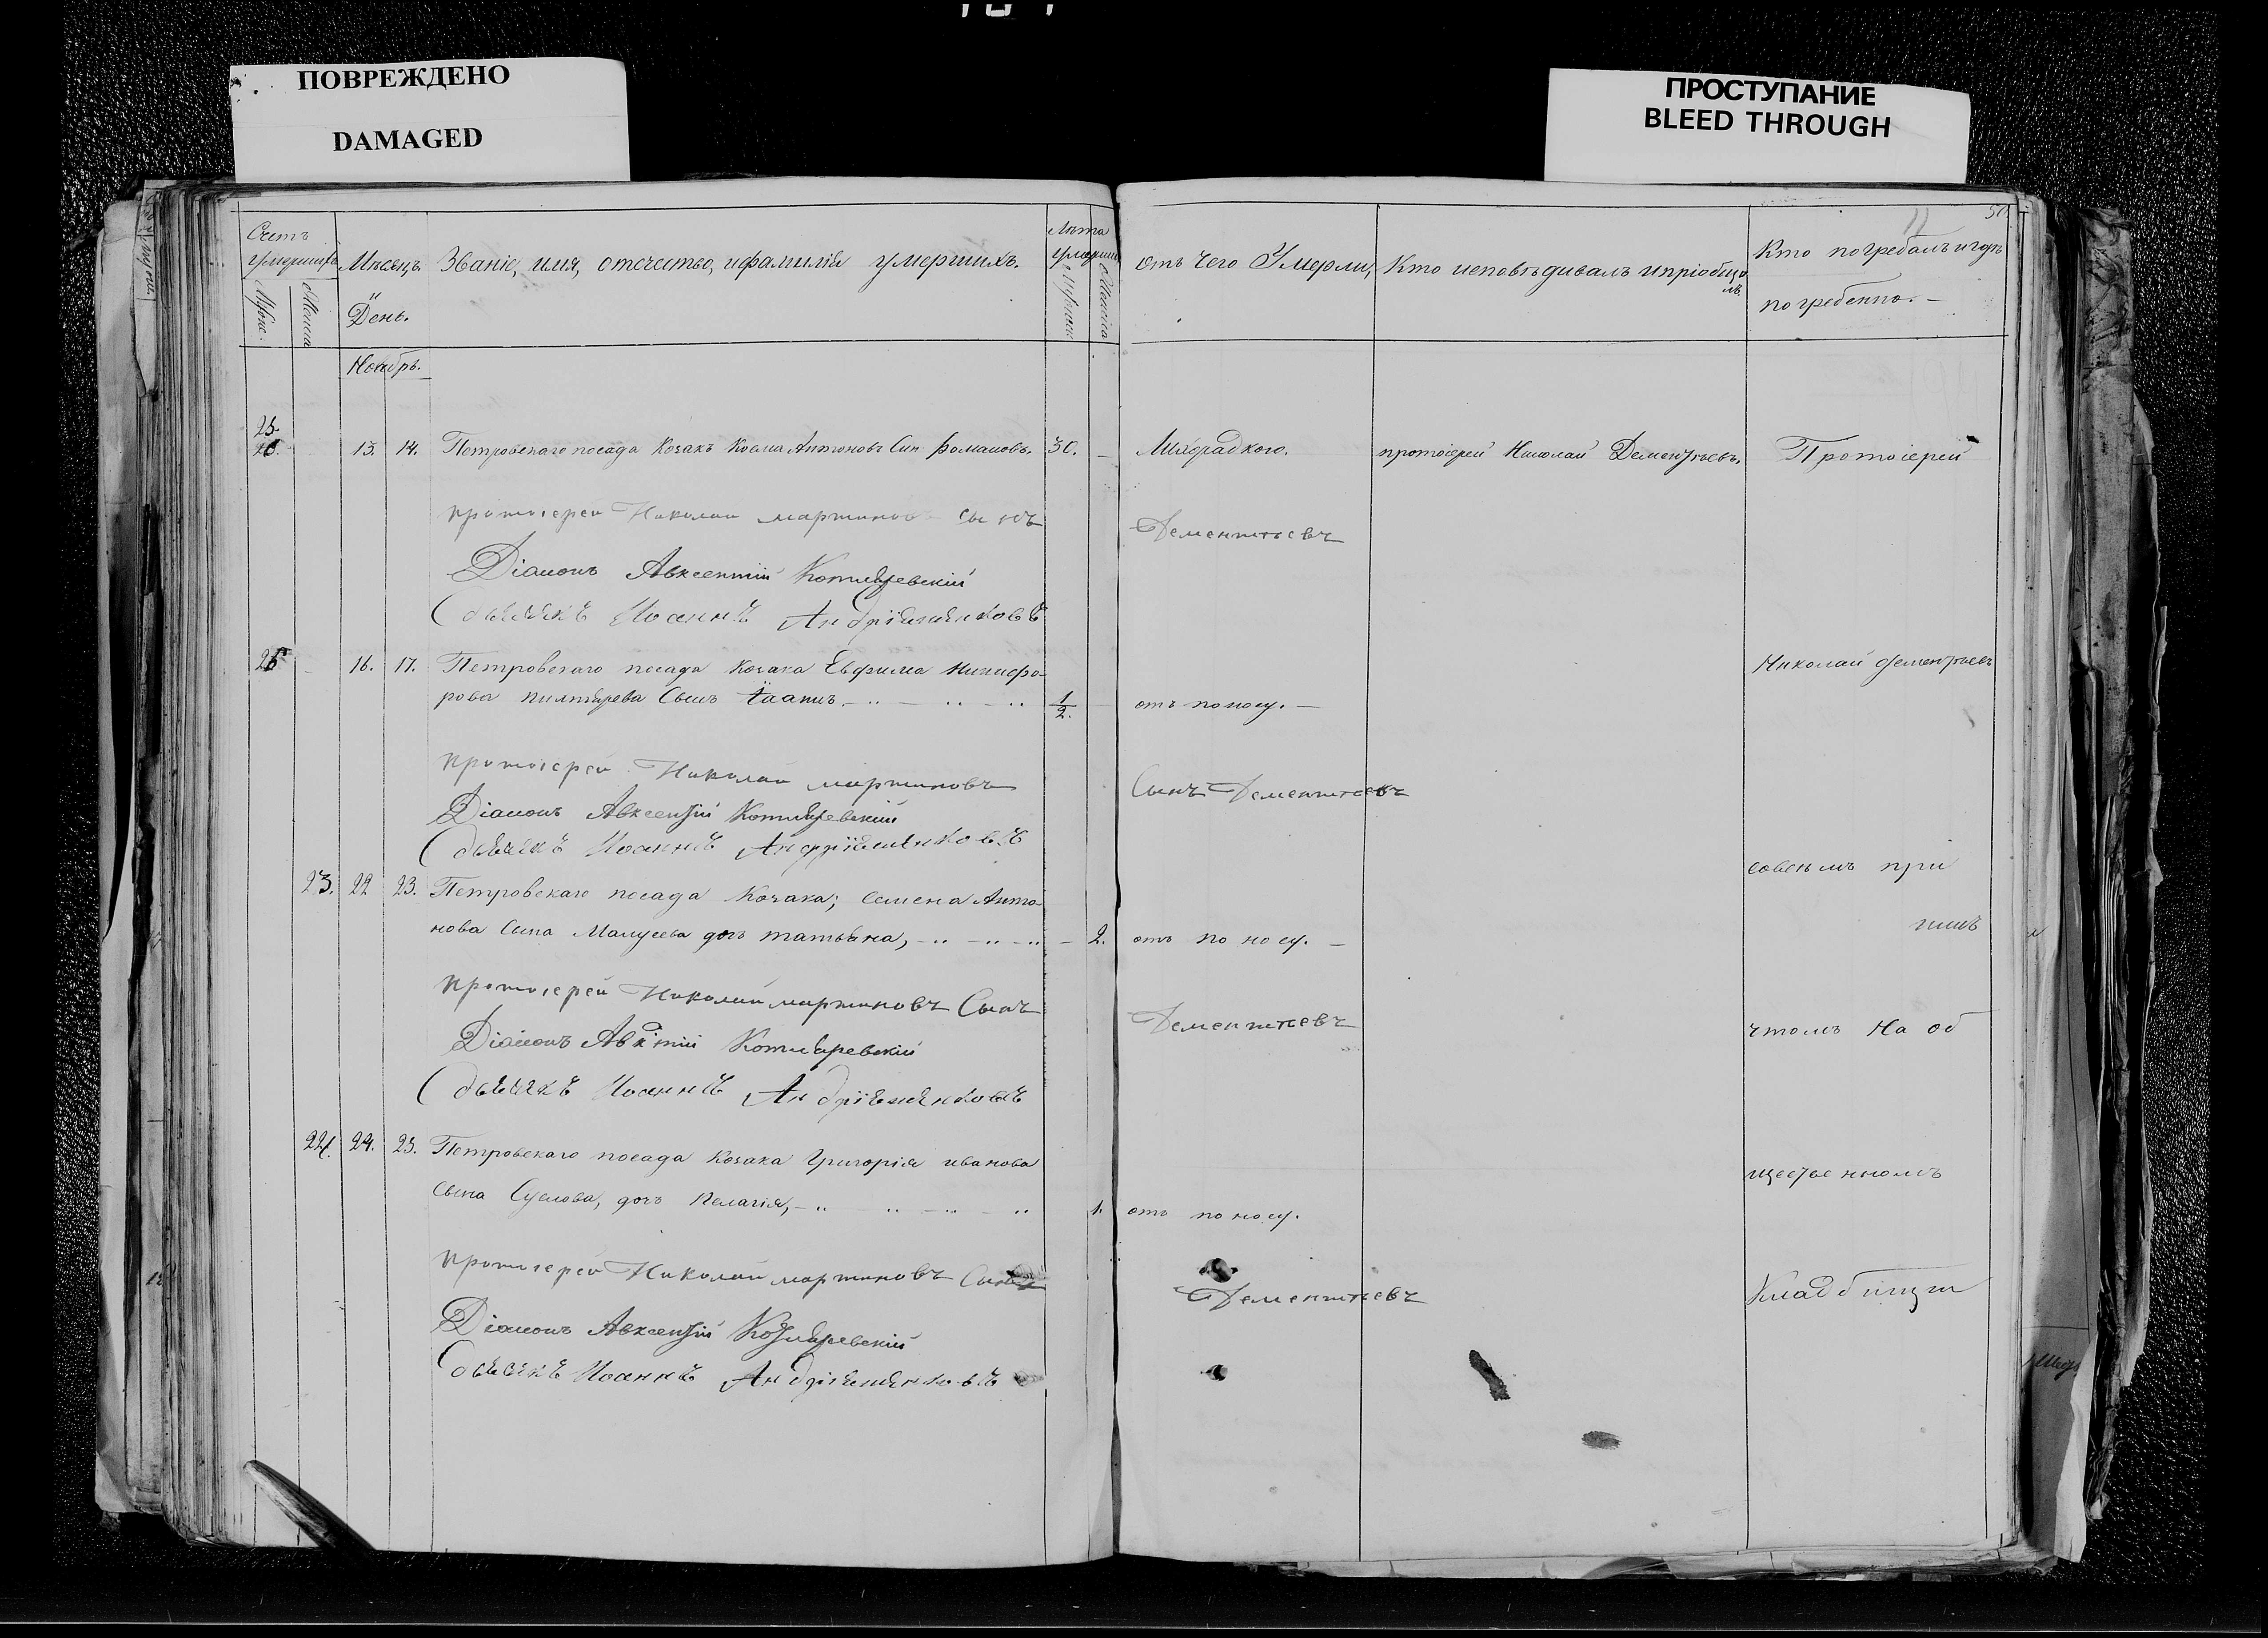 ПОВРЕЖДЕНО
DAMAGED
ПРОСТУПАНИЕ
BLEED THROUGH
Счетъ умершихъ
Муж.
Женска
Мѣсяцъ и День.
Званіе, имя, отечество, ифамилія умершихъ.
Лѣта умершихъ
Мужска
Женска
отъ чего Умерли,
Кто исповѣдивалъ ипріобщалъ.
Кто погребалъ игдѣ
погребенно. —
Ноябрь.
25.
13. 14. Петровскаго посада Козакъ Косма Антоновъ Син Фомановъ. 30. — Лихорадкою. протоіерей Николай Дементьевъ. Протоіерей
протоіерей Николай мартиновъ сынъ Дементьевъ
Діаконъ Авксентій Котляревскій
дьячекъ Иоаннъ Андріяшенковъ
26 16. 17. Петровскаго посада Козака Евфима Никифо-
Николай Дементьевъ
рова Сынъ Іоанъ. 1/2. отъ поносу. —
протоіерей Николай мартиновъ Сынъ Дементьевъ
Діаконъ Авксентій Котляревскій
дьячекъ Иоаннъ Андріяшенковъ
совсѣмъ при
23. 22 23. Петровскаго посада Козака; Семена Анто-
нова Сина Малусева дочь татьяна, — 2. отъ поносу. —
чтомъ на об
протоіерей Николай мартиновъ Сынъ Дементьевъ
Діаконъ Котляревскій
дьячекъ Иоаннъ Андріяшенковъ
24. 24. 25. Петровскаго посада Козака Григорія иванова
щественномъ
сына Суслова, дочь Пелагія, 1. отъ поносу.
протоіерей Николай мартиновъ Сынъ Дементьевъ
Кладбищи
Діаконъ Авксентій Котляревскій
дьячекъ Иоаннъ Андріяшенковъ